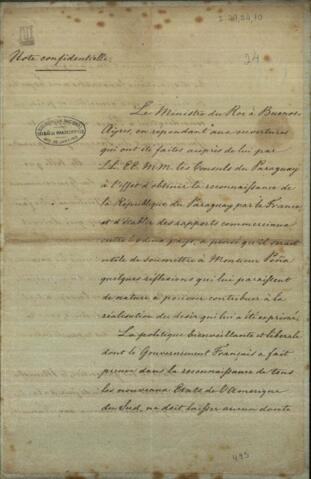 I-29,24,10
24
Note confidentielle.
Le Ministre du Roi à Buenos-
Ayres, en répondant aux ouvertures
qui ont été faites auprès de lui par
LL. EE. M.M. les Consuls du Paraguay
à l'effet d'obtenir la reconnaissance de
la République du Paraguay par la France
et d'établir des rapports commerciaux
entre les deux pays, a pensé qu'il serait
utile de soumettre à Monsieur Peña
quelques réflexions qui lui paraissent
de nature à pouvoir contribuer à la
réalisation du désir qui lui a été exprimé.
La politique bienveillante et libérale
dont le Gouvernement Français a fait
preuve dans la reconnaissance de tous
les nouveaux Etats de l'Amérique
du Sud, ne doit laisser aucun doute
495